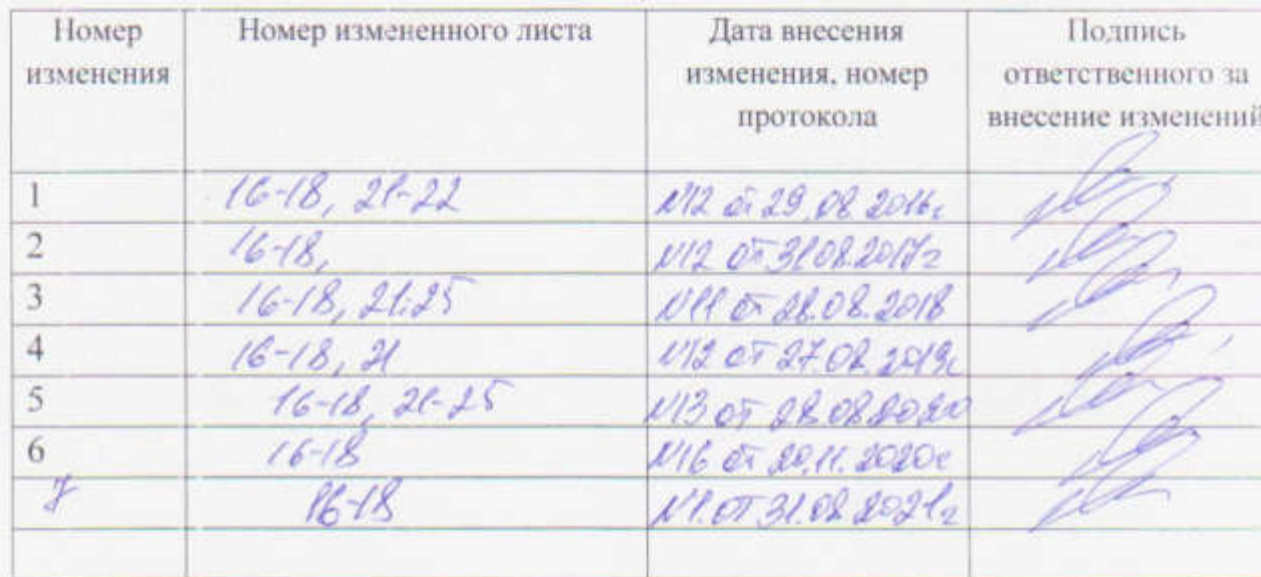 Номер изменения Номер измененного листа Дата внесения изменения, номер протокола Подпись ответственного за внесение изменений
1 16-18, 21-22 №12 от 29.08.2016г
2 16-18, №12 от 31.08.2017г
3 16-18, 21-25 №11 от 28.08.2018
4 16-18, 21 №12 от 27.08.2019г
5 16-18, 21-25 №13 от 28.08.2020
6 16-18 №16 от 20.11.2020г
7 16-18 №1 от 31.08.2021г